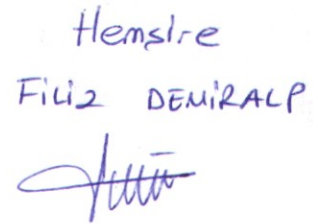 Hemşire
Filiz DEMİRALP